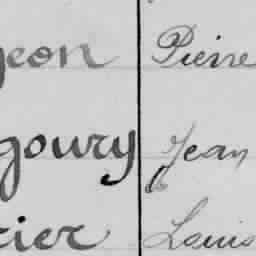 geon Pierre
goury Jean
rier Louis